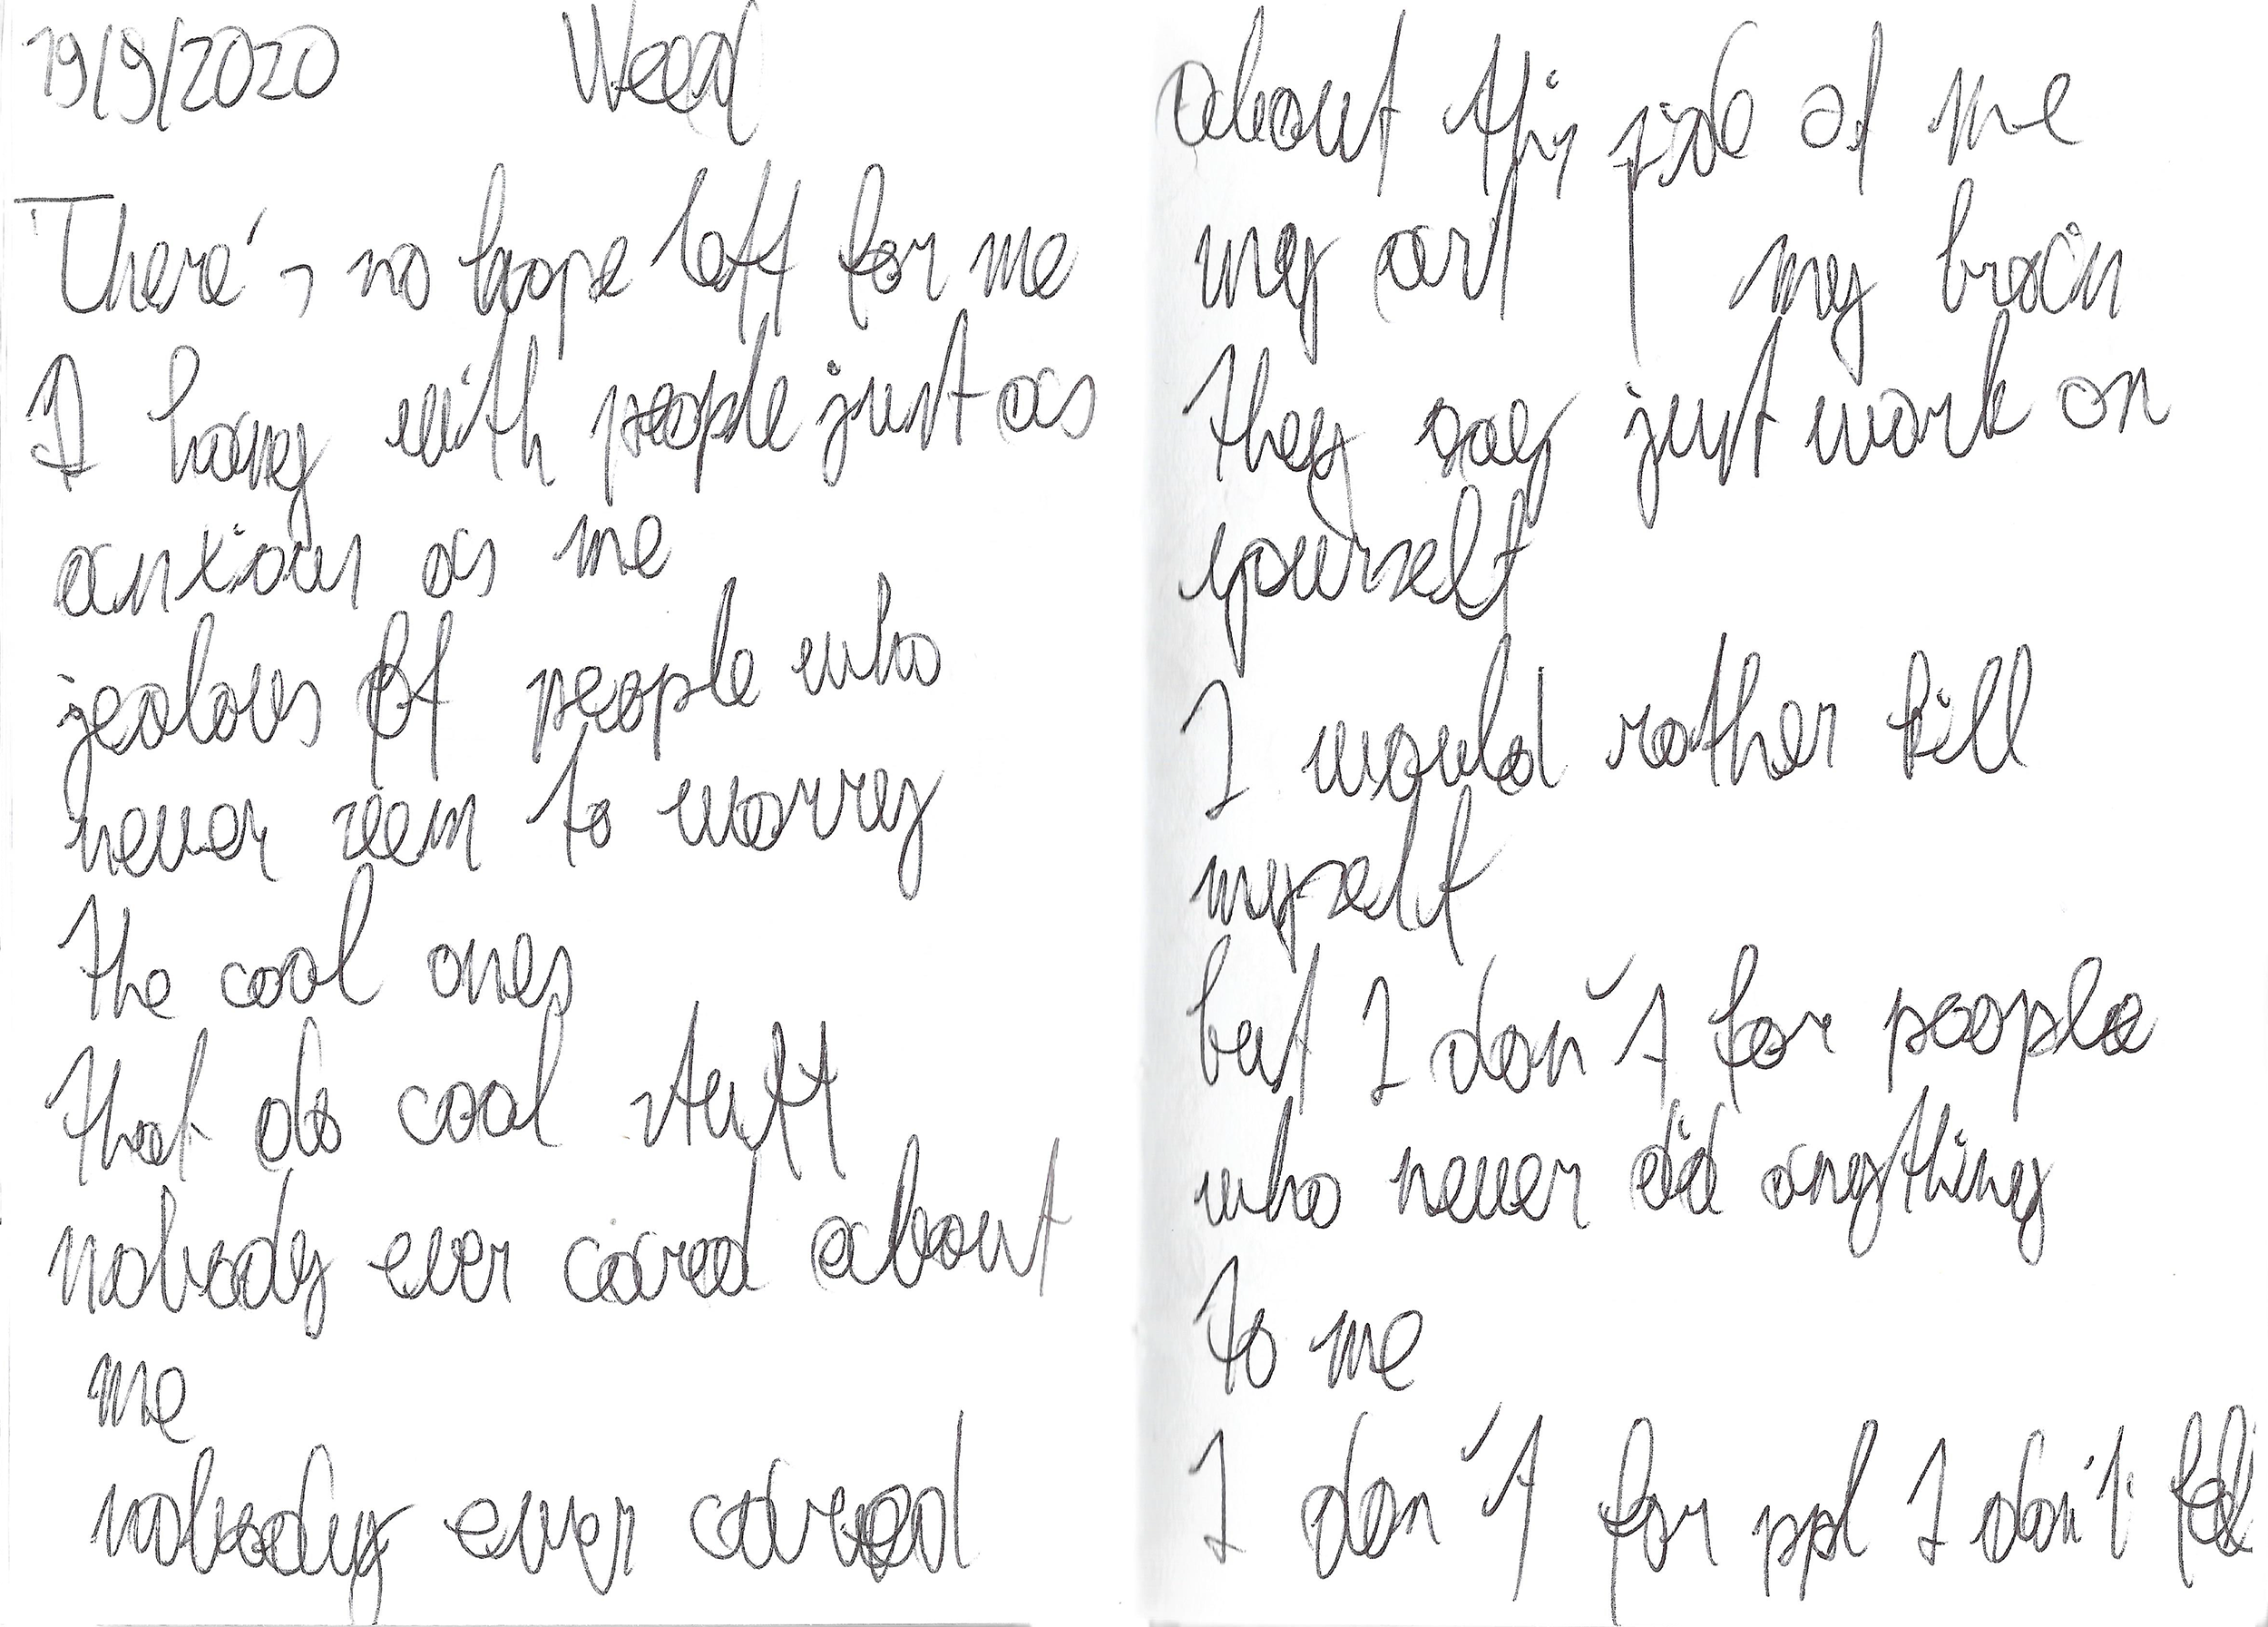 19/9/2020 Weed
There's no hope left for me
I hang with people just as
anxious as me
jealous of people who
never seem to worry
the cool ones
that do cool stuff
nobody ever cared about
me
nobody ever cared
about this side of me
my art my brain
they say just work on
yourself
I would rather kill
myself
but I don't for people
who never did anything
to me
I don't for ppl I don't